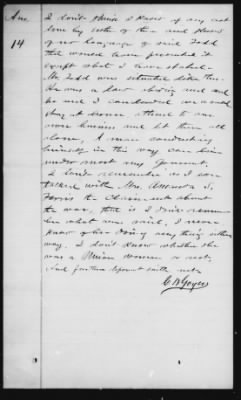 Ans I don't think I know of any act
14 done by either of them and know
of no language of said Todd
that would have prevented it
except what I have stated.
Mr. Todd was situated like this.
He was a law abiding and
he and I concluded we would
stay at home attend to our
own business and let them all
alone. A man conducting
himself in this way can live
under most any Government.
I don't remember as I ever
talked with Mrs. Amanda S.
Favis the Claimant about
the war, that is I don't remem-
ber what was said, I never
knew of her doing any thing either
way. I don't know whether she
was a Union woman or not.
And further deponent saith not.